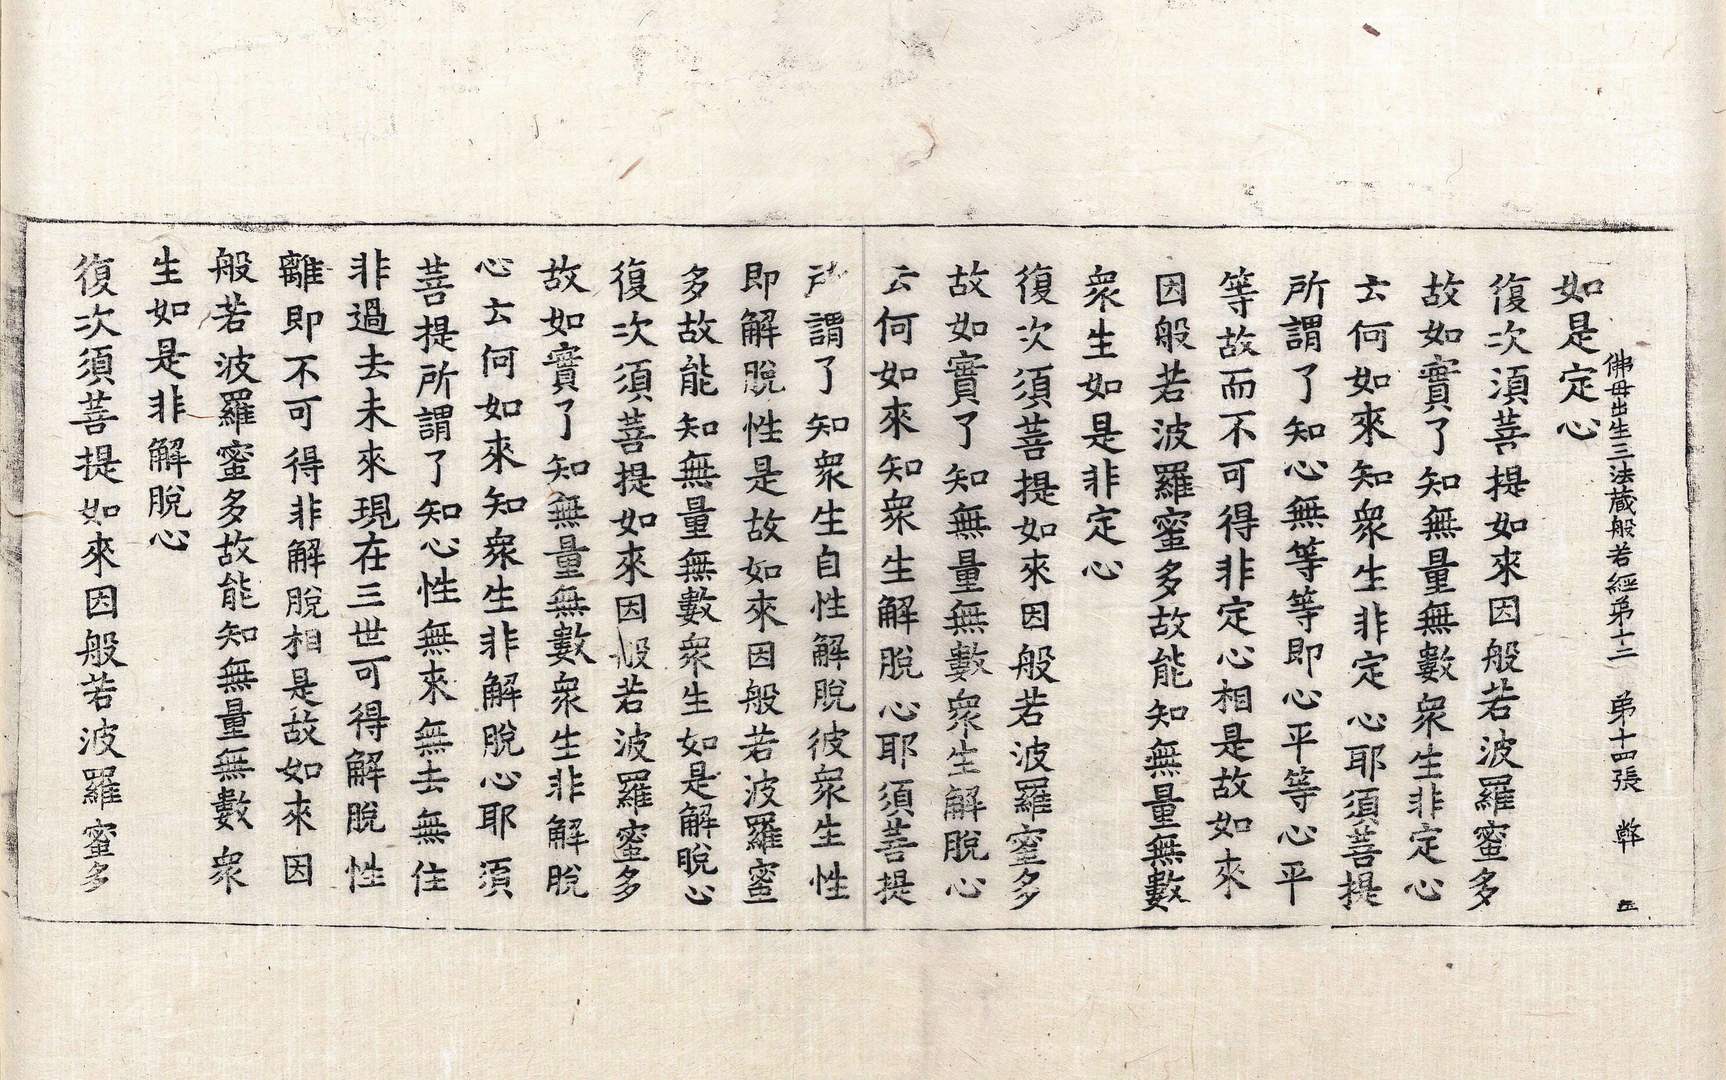 佛母出生三法藏般若經第十二 第十四張 弊
如是定心
復次湏菩提如來因般若波羅蜜多
故如實了知無量無數衆生非定心
云何如來知衆生非定心耶湏菩提
所謂了知心無等等即心平等心平
等故而不可得非定心相是故如來
因般若波羅蜜多故能知無量無數
衆生如是非定心
復次湏菩提如來因般若波羅蜜多
故如實了知無量無數衆生解脫心
云何如來知衆生解脫心耶須菩提
所謂了知衆生自性解脫彼衆生性
即解脫性是故如來因般若波羅蜜
多故能知無量無數衆生如是解脫心
復次須菩提如來因般若波羅蜜多
故如實了知無量無數衆生非解脫
心云何如來知衆生非解脫心耶湏
菩提所謂了知心性無來無去無住
非過去未來現在三世可得解脫性
離即不可得非解脫相是故如來因
般若波羅蜜多故能知無量無數衆
生如是非解脫心
復次須菩提如來因般若波羅蜜多